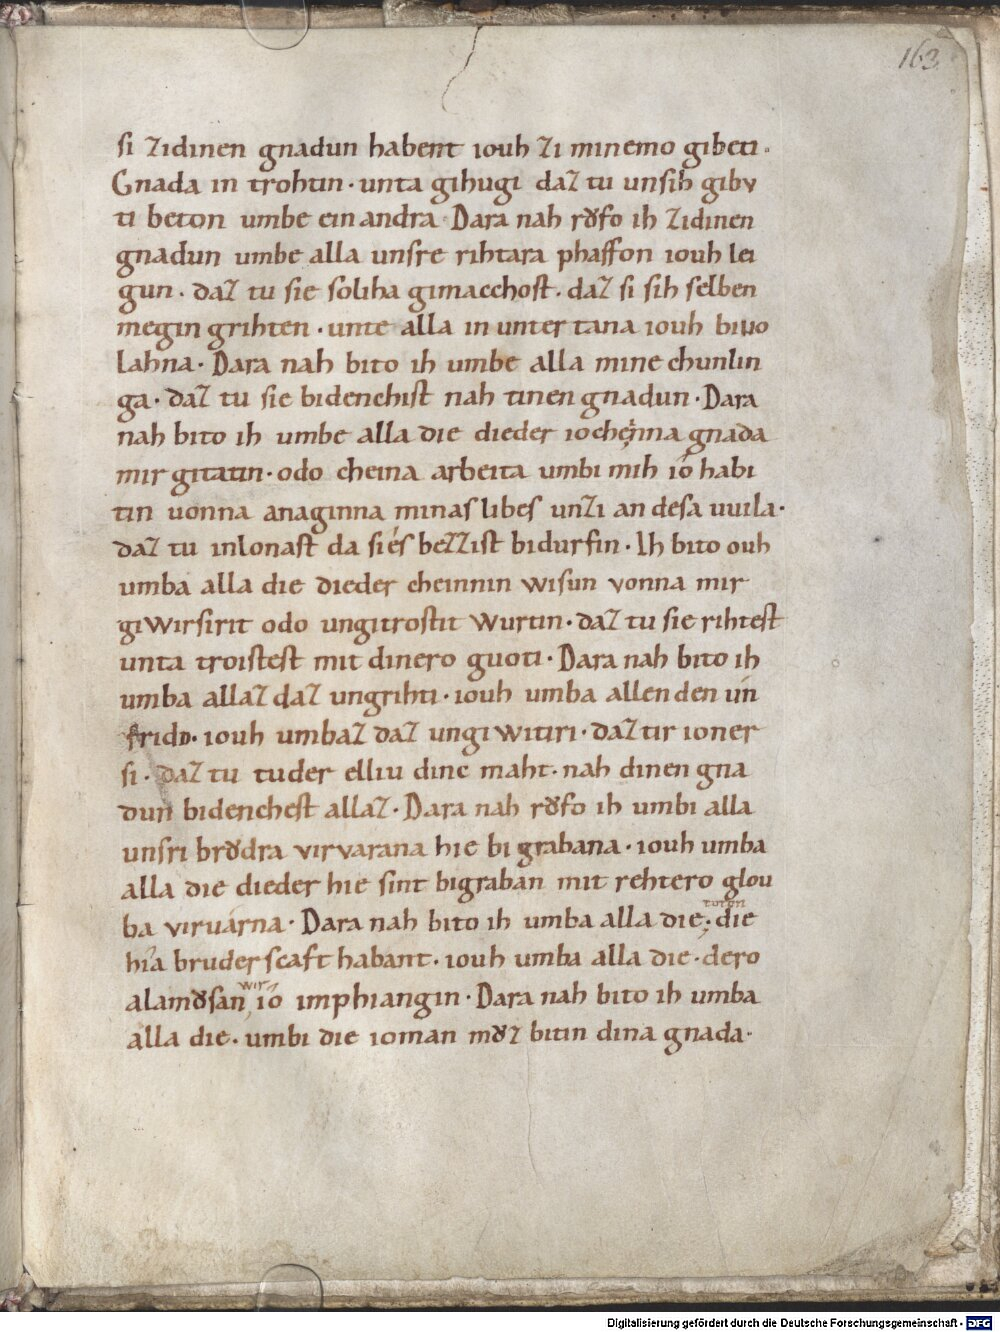 163
si zidinen gnadun habent iouh zi minemo gibeti.
Gnada in trohtin· unta gihugi daz tu unsih giby
ti beton umbe ein andra· Dara nah rǒfo ih zidinen
gnadun umbe alla unsre rihtara phaffon iouh lei
gun· daz tu sie soliha gimacchost· daz si sih selben
megin grihten· unte alla in unter tana iouh biuo
lahna· Dara nah bito ih umbe alla mine chunlin
ga· daz tu sie bidenchist nah tinen gnadun· Dara
nah bito ih umbe alla die dieder iocheinna gnada
mir gitatin· odo cheina arbeita umbi mih ío habi
tin uonna anaginna minas libes unzi an desa uuila·
daz tu inlonast da siés bezzist bidurfin· Ih bito ouh
umba alla die dieder cheinnin wisun vonna mir
giwirsirit odo ungitrostit wurtin· daz tu sie rihtest
unta troistest mit dinero guoti· Dara nah bito ih
umba allaz daz ungrihti· iouh umba allen den ún
frido· iouh umbaz daz ungiwitiri· daz tir ioner
si· daz tu tuder elliu dinc maht· nah dinen gna
dun bidenchest allaz· Dara nah rǒfo ih umbi alla
unsri brǒdra virvarana hie bi grabana· iouh umba
alla die dieder hie sint bigraban mit rehtero glou
ba viruárna· Dara nah bito ih umba alla die; die
toton
hía bruderscaft habant· iouh umba alla die· dero
alamǒsan, ío imphiangin· Dara nah bito ih umba
wir
alla die· umbi die ioman mǒz bitin dina gnada·
Digitalisierung gefördert durch die Deutsche Forschungsgemeinschaft · DFG